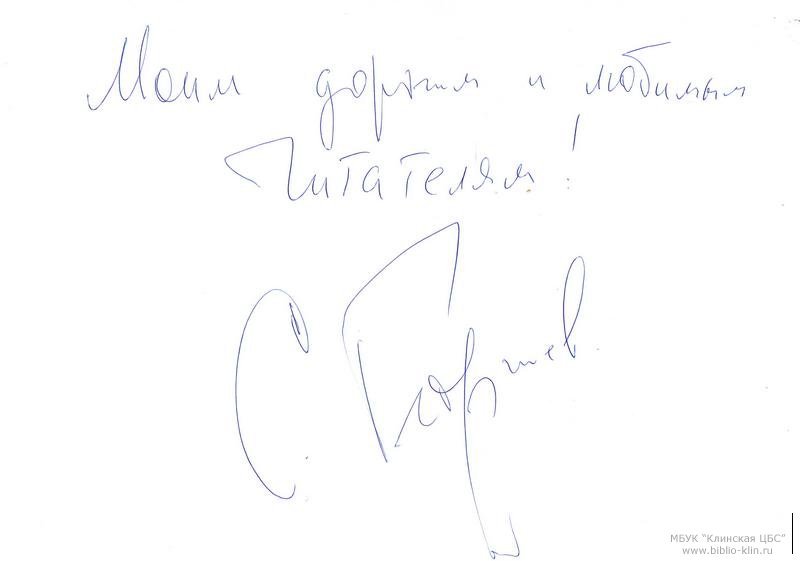 Моим дорогим и любимым
Читателям!
С.
МБУК "Клинская ЦБС"
www.biblio-klin.ru